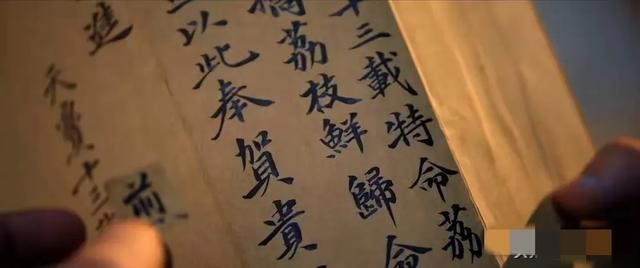 十三載特命荔
荔枝鮮歸
以此奉賀貴
進
天寶十三
煎